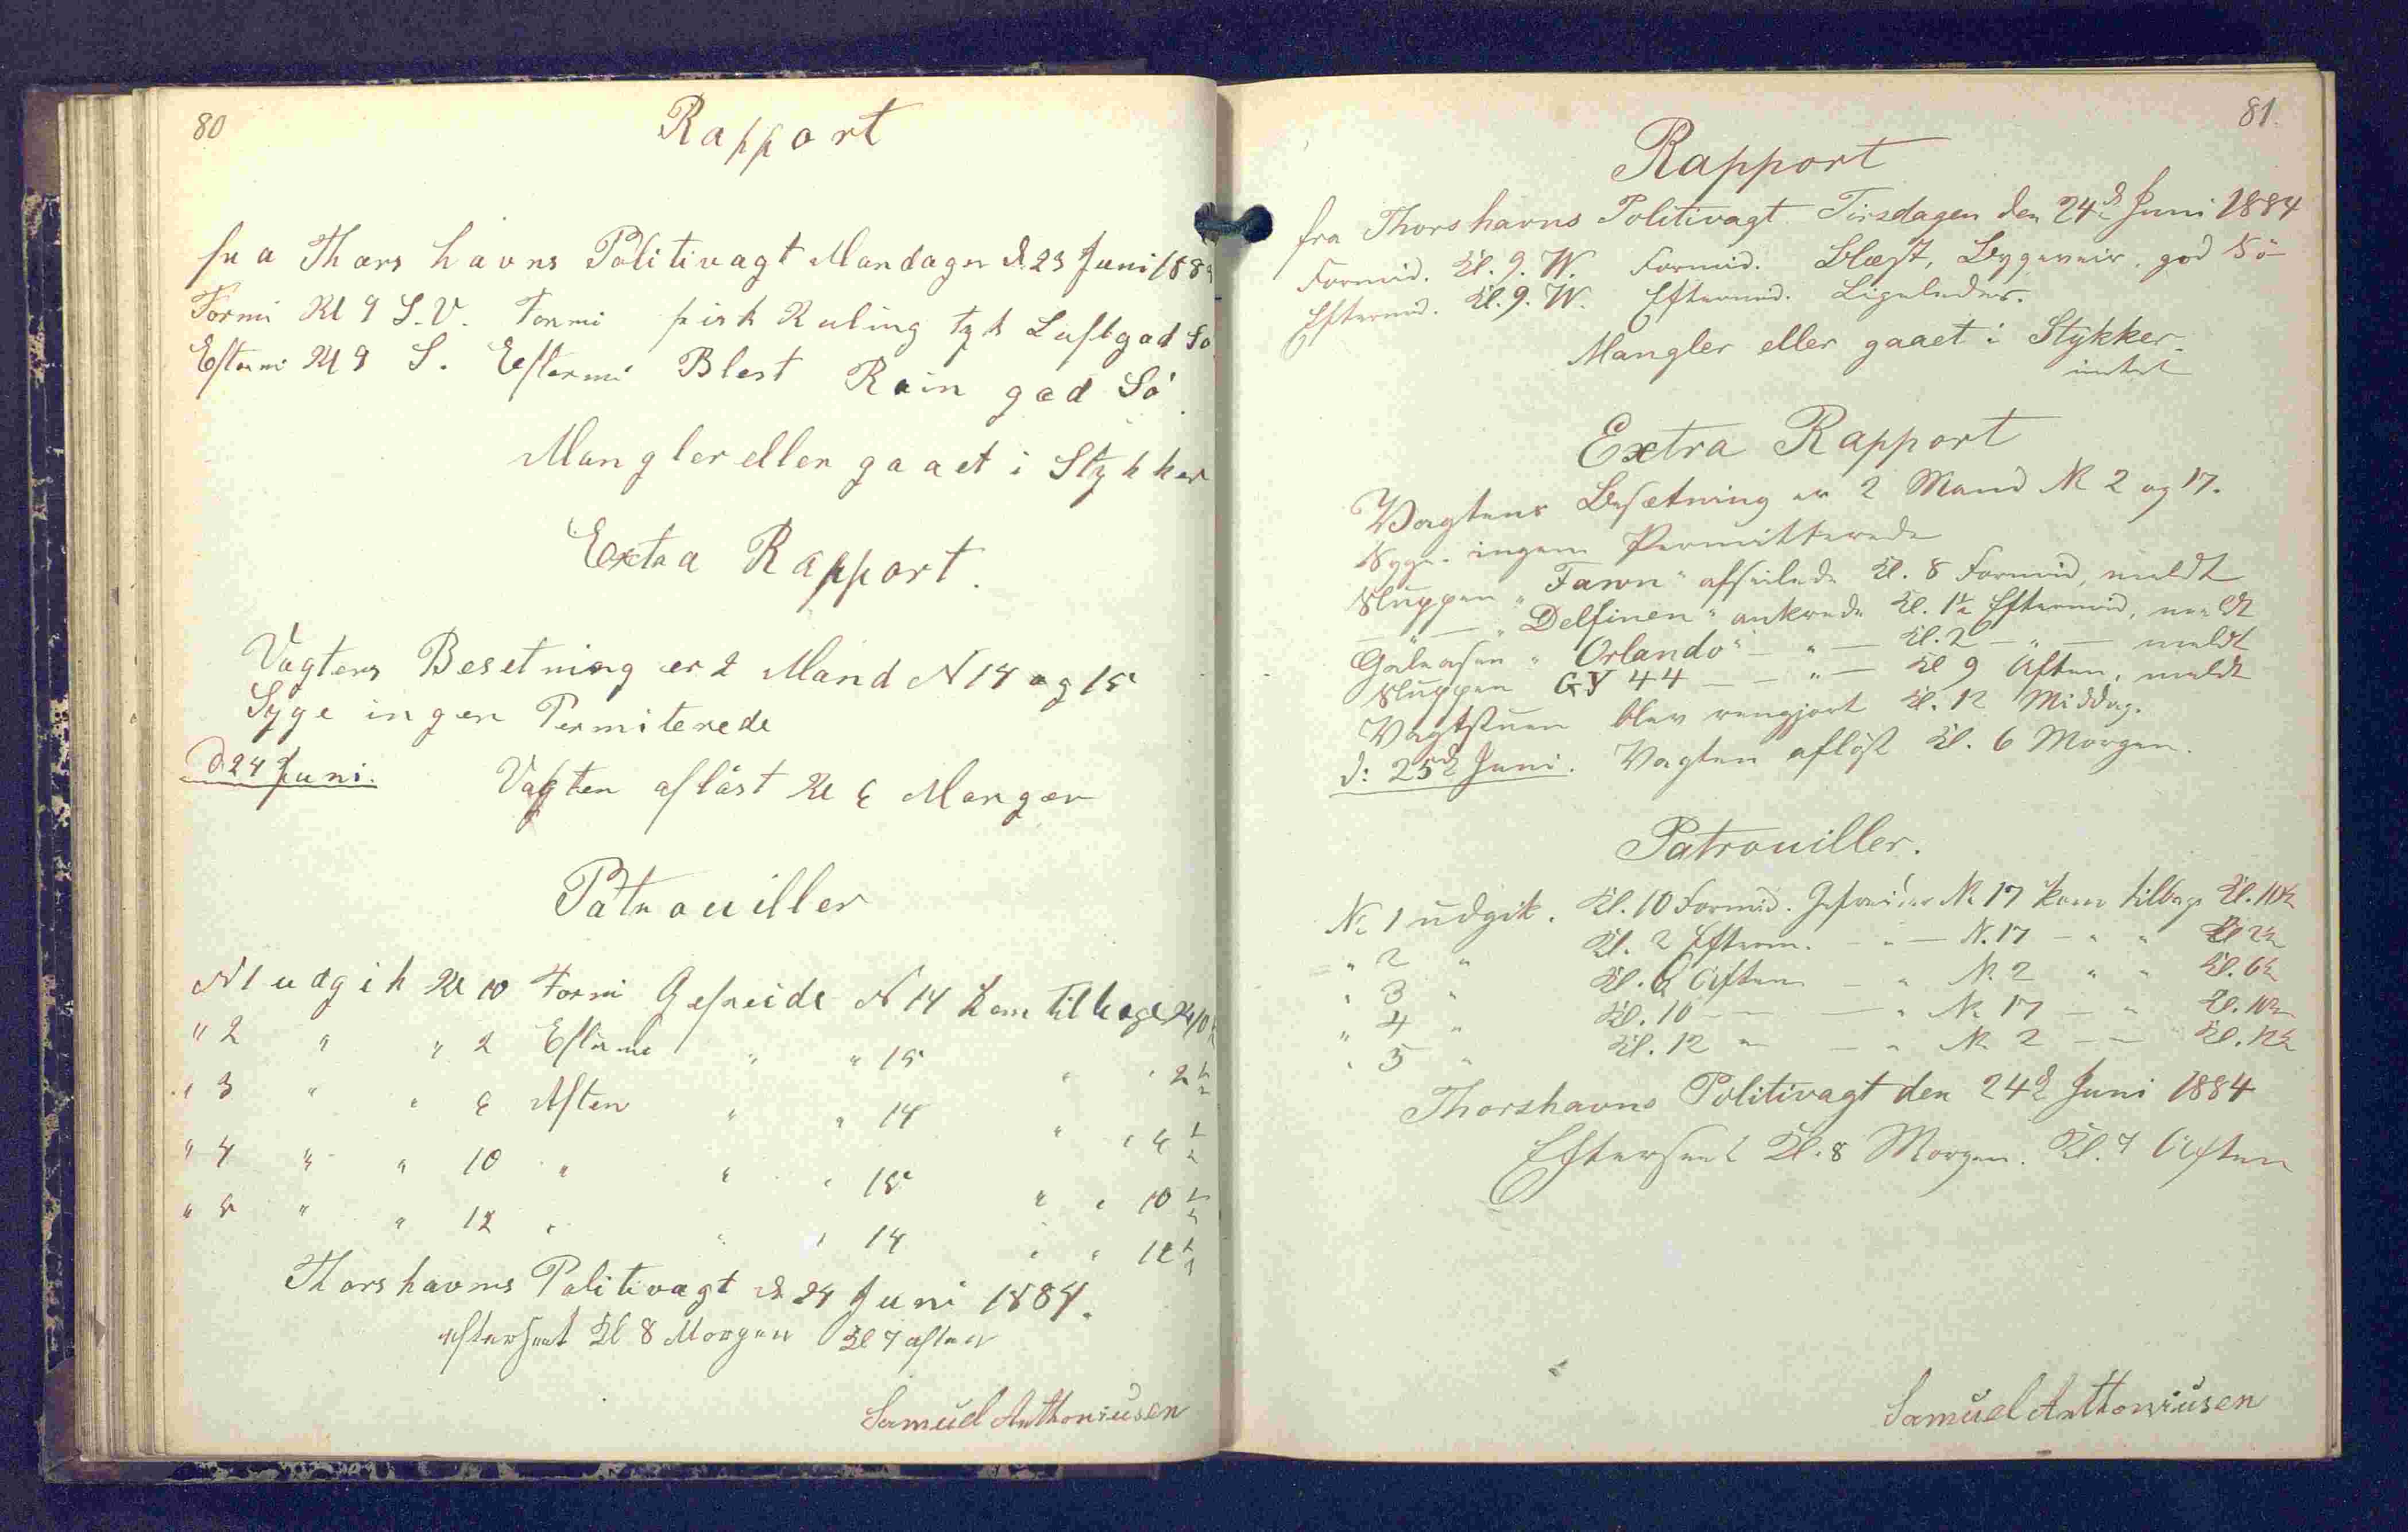 80
Rapport
fra Thorshavns Politivagt Mandagen d. 23 Juni 188
Formi Kl 9 S.V. Formi frisk Kuling tyk Luft god Sö
Eftermi Kl 9 S. Eftermi Blest Rain god Sö
Mangler eller gaaet i Stykker
Extra Rapport.
Vagtens Besetning er 2 Mand N 14 og 15
Syge ingen Permiterede
d. 24 Juni. Vagten aflöst Kl 6 Morgen
Patrouiller
N 1 udgik Kl 10 Formi Gefreide N 14 kom tilbage Kl 10½
" 2 " " 2 Eftermi " " 15 " " 2½
" 3 " " 6 Aften " " 14 " " 6½
" 4 " " 10 " " " 15 " " 10½
" 5 " " 12 " " " 14 " " 12½
Thorshavns Politivagt d 24 Juni 1884.
efterseet Kl 8 Morgen Kl 7 aften
Samuel Anthoniusen
81.
Rapport
fra Thorshavns Politivagt Tirsdagen den 24d Juni 1884
Formid. Kl. 9. W. Formid. Blæst, Bygeveir, god Sö
Eftermd. Kl. 9. W. Eftermd. Ligeledes.
Mangler eller gaaet i Stykker.
intet
Extra Rapport
Vagtens Besætning er 2 Mand No 2 og 17.
Syge - ingen Permitterede
Sluppen "Fawn" afseilede Kl. 8 Formid, meldt
— " — "Delfinen" ankrede Kl. 1½ Eftermid, meldt
Galeasen "Orlando" — " — Kl. 2 — " — meldt
Sluppen GY 44 — — " — Kl 9 Aften, meldt
Vagtstuen blev rengjort Kl. 12 Middag.
d: 25d Juni. Vagten aflöst Kl. 6 Morgen.
Patrouiller.
No 1 udgik. Kl. 10 Formd. Gefreider No 17 kom tilbage Kl. 10½
" 2 " Kl. 2 Efterm. — " — N. 17 — " " Kl 2½
" 3 " Kl. 6 Aften — " No. 2 " " Kl. 6½
" 4 " Kl. 10 — — — " No 17 — " Kl. 10½
" 5 " Kl. 12 " — " No 2 — — Kl. 12½
Thorshavns Politivagt den 24d Juni 1884
Efterseet Kl. 8 Morgen. Kl. 7 Aften
Samuel Anthoniusen